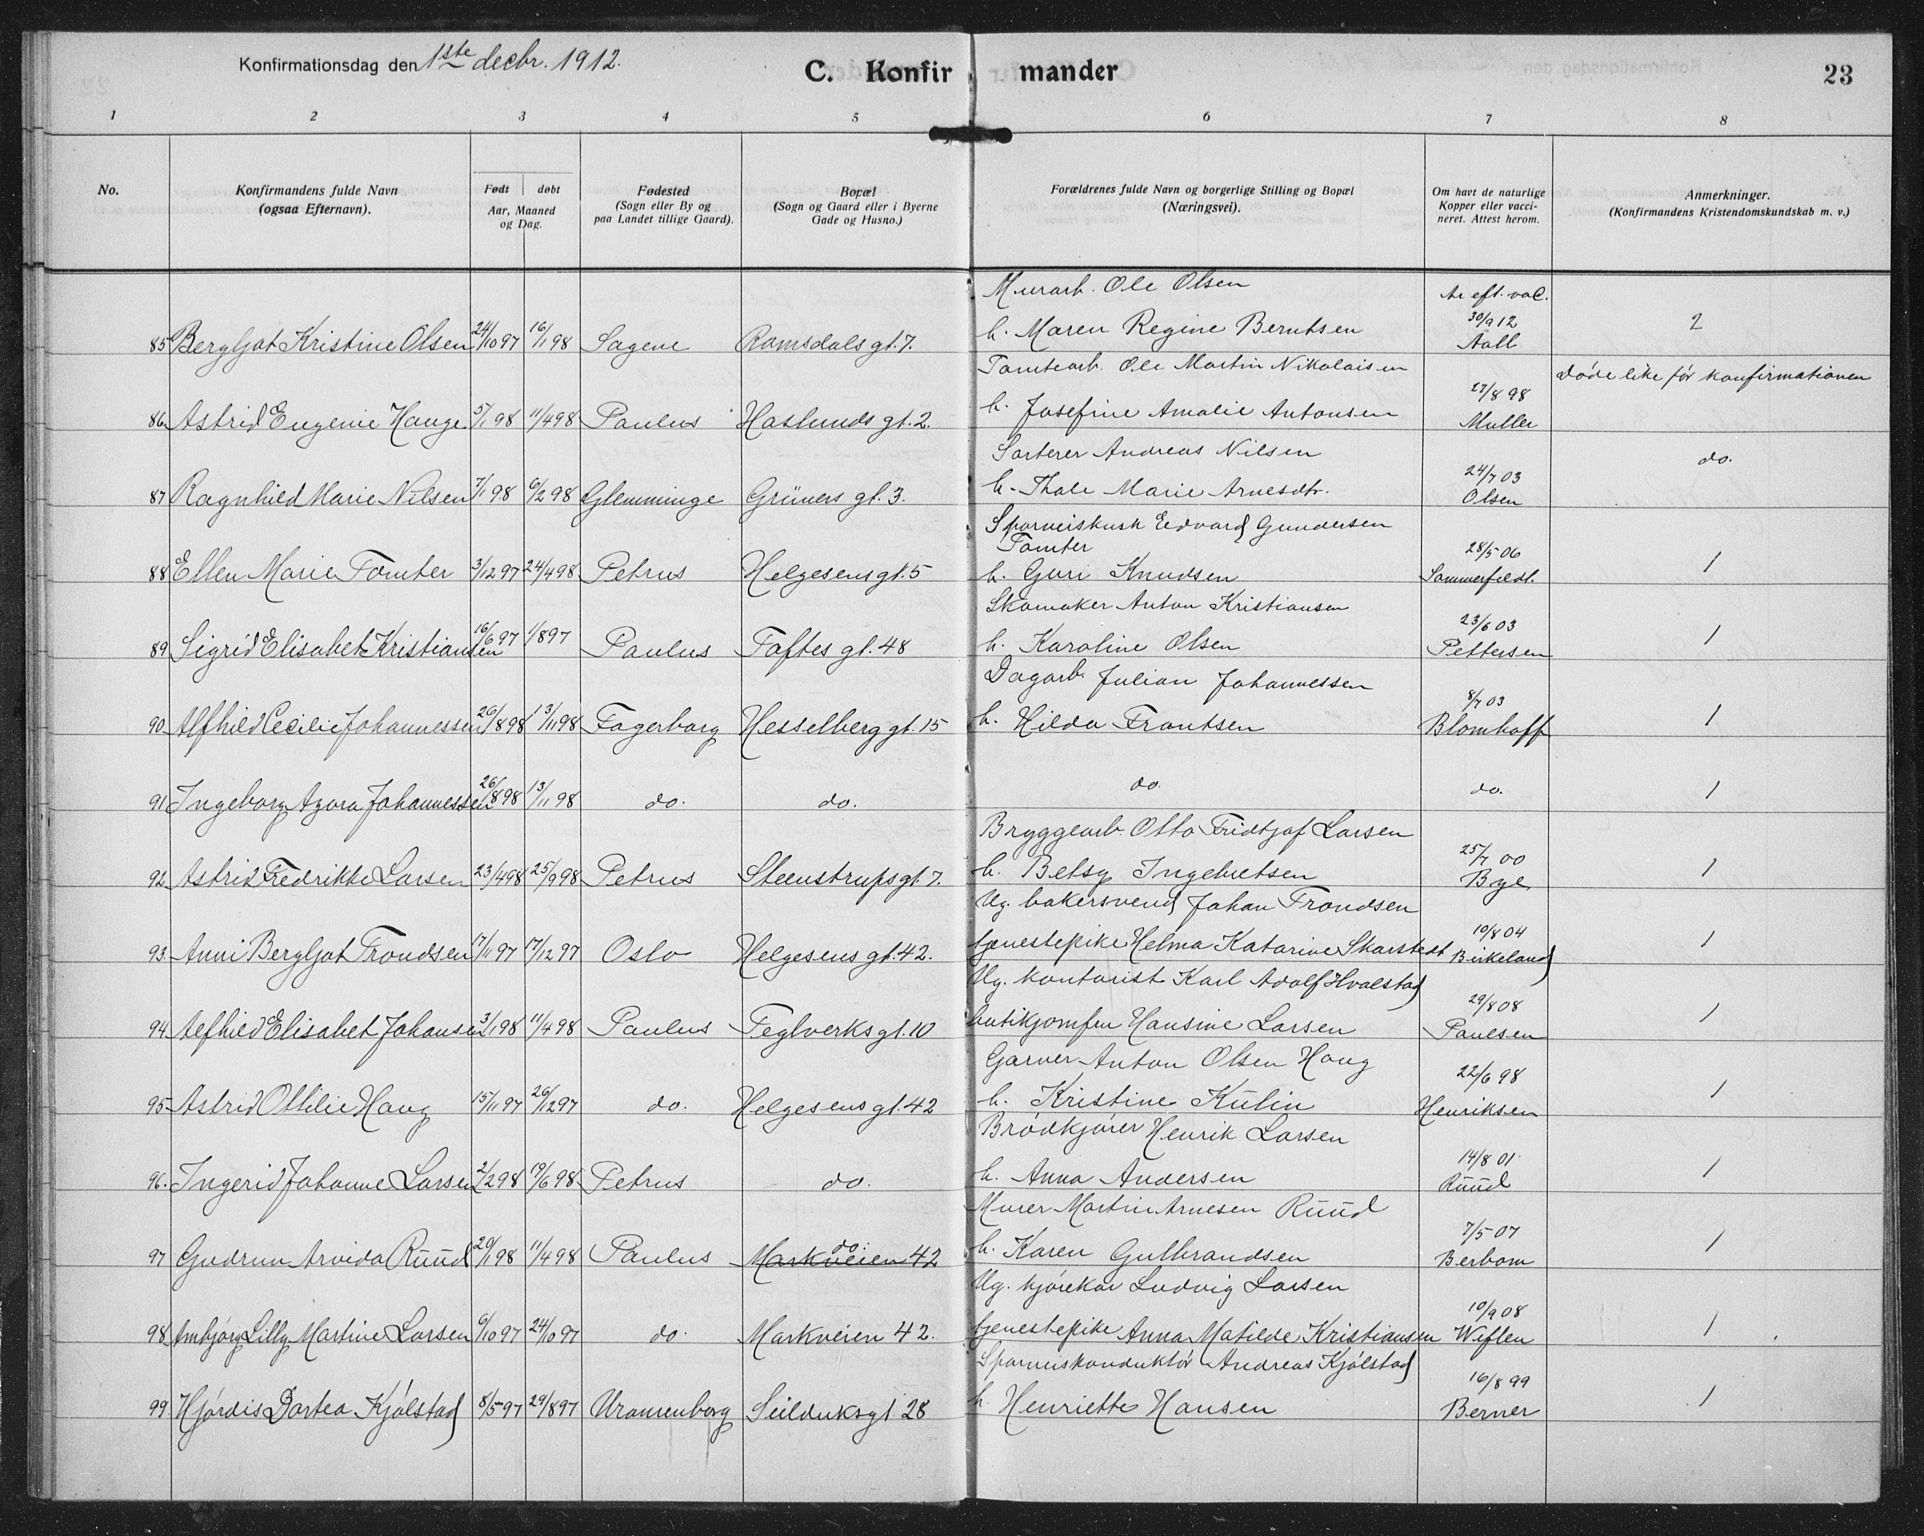 Konfirmationsdag den 1ste decbr. 1912.
C. Konfirmander
23
1 2 3 4 5 6 7 8
No.
Konfirmandens fulde Navn
(ogsaa Efternavn).
Født døbt
Aar, Maaned
og Dag.
Fødested
(Sogn eller By og
paa Landet tillige Gaard).
Bopæl
(Sogn og Gaard eller i Byerne
Gade og Husno.)
Forældrenes fulde Navn og borgerlige Stilling og Bopæl
(Næringsvei).
Om havt de naturlige
Kopper eller vacci-
neret. Attest herom.
Anmerkninger.
(Konfirmandens Kristendomskundskab m. v.)
Murarb. Ole Olsen
At eft. vac.
30/9 12
85 Bergljot Kristine Olsen 24/10 97 16/1 98 Sagene Romsdals gt. 7. h. Maren Regine Berntsen Aall 2
Tomtearb. Ole Martin Nikolaisen
Døde like før konfirmationen
27/8 98
86. Astrid Eugenie Hauge 5/1 98 11/4 98 Paulus Haslunds gt. 2. h. Josefine Amalie Antonsen Muller
Sorterer Andreas Nilsen
do.
24/7 03
87 Ragnhild Marie Nilsen 7/1 98 6/2 98 Glemminge Grüners gt. 3. h. Thale Marie Arnesdtr. Olsen
Sporveiskusk Edvard Gundersen
Tomter
28/5 06
88 Ellen Marie Tomter 3/12 97 24/4 98 Petrus Helgesens gt. 5 h. Guri Knudsen Sommerfeldt. 1
Skomaker Anton Kristiansen
23/6 03
89 Sigrid Elisabet Kristiansen 16/6 97 1/8 97 Paulus Toftes gt. 48 h. Karoline Olsen Pettersen 1
Dagarb. Julian Johannessen
8/7 03
90. Alfhild Cecilie Johannessen 26/8 98 13/11 98 Fagerborg Hesselberg gt. 15 h. Hilda Frantsen Blomhoff 1
91 Ingeborg Agora Johannessen 26/8 98 13/11 98 do. do. do. do. 1
Bryggearb. Otto Fridtjof Larsen
25/7 00
92 Astrid Fredrikke Larsen 23/4 98 25/9 98 Petrus Steenstrups gt. 7. h. Betsy Ingebretsen Bye 1
Ug. bakersvend Johan Trondsen
19/8 04
93. Anni Bergljot Trondsen 17/11 97 17/12 97 Oslo Helgesens gt. 42. tjenestepike Helma Katarine Skarstedt Birkeland 1
Ug. kontorist Karl Adolf Hvalstad
29/8 08
94. Alfhild Elisabet Johansen 3/1 98 11/4 98 Paulus Teglverks gt. 10 butikjomfru Hansine Larsen Paulsen 1
Garver Anton Olsen Haug
22/6 98
95 Astrid Ottilie Haug 15/11 97 26/12 97 do. Helgesens gt. 42 h. Kristine Kulin Henriksen 1
Brødkjører Henrik Larsen
14/8 01
96. Ingerid Johanne Larsen 2/2 98 19/6 98 Petrus do. h. Anna Andersen Ruud 1
Murer Martin Arnesen Ruud
7/5 07
97 Gudrun Arvida Ruud 20/1 98 11/4 98 Paulus Markveien 42 do. h. Karen Gulbrandsen Berbom 1
Ug. kjørekar Ludvig Larsen
10/9 08
98 Ambjørg Lilly Martine Larsen 6/10 97 24/10 97 do. Markveien 42. tjenestepike Anna Matilde Kristiansen Wiflen 1
Sporveiskonduktør Andreas Kjølstad
16/8 99
99 Hjørdis Dortea Kjølstad 8/5 97 29/8 97 Uranienborg Seilduksgt 28 h. Henriette Hansen Berner 1